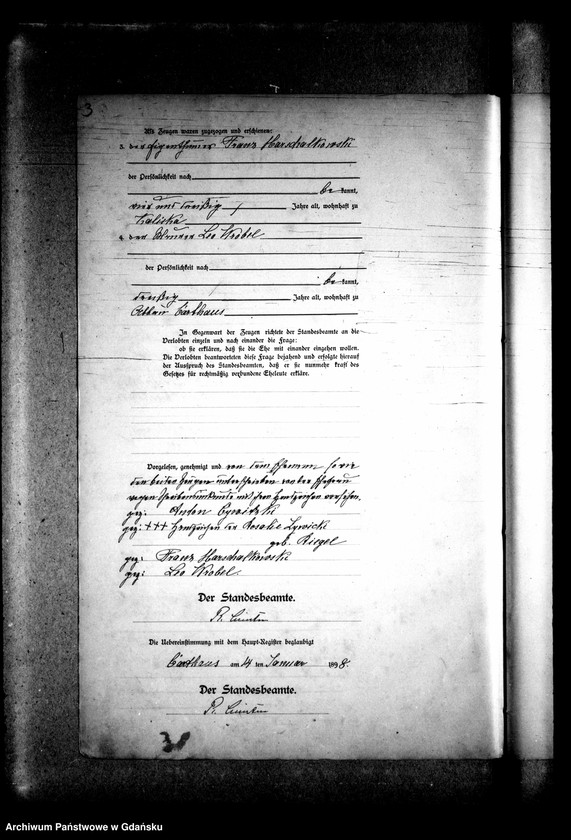 3
Als Zeugen waren zugezogen und erschienen:
3. der Eigenthümer Franz Marschalkowski
der Persönlichkeit nach
be kannt,
vier und dreißig Jahre alt, wohnhaft zu
Kaliska
4. der Leo Wrobel
der Persönlichkeit nach
be kannt,
dreißig Jahre alt, wohnhaft zu
Abbau Carthaus
In Gegenwart der Zeugen richtete der Standesbeamte an die
Verlobten einzeln und nach einander die Frage:
ob sie erklären, daß sie die Ehe mit einander eingehen wollen.
Die Verlobten beantworteten diese Frage bejahend und erfolgte hierauf
der Ausspruch des Standesbeamten, daß er sie nunmehr kraft des
Gesetzes für rechtmäßig verbundene Eheleute erkläre.
Vorgelesen, genehmigt und von dem Ehemann sowie
den beiden Zeugen unterschrieben von der Ehefrau
wegen Schreibensunkunde mit dem Handzeichen versehen.
gez: Anton
gez: +++ Handzeichen der Rosalie
geb. Riegel
gez: Franz Marschalkowski
gez: Leo Wrobel.
Der Standesbeamte.
Die Uebereinstimmung mit dem Haupt-Register beglaubigt
Carthaus am 4 ten Januar 1898.
Der Standesbeamte.
Archiwum Państwowe w Gdańsku